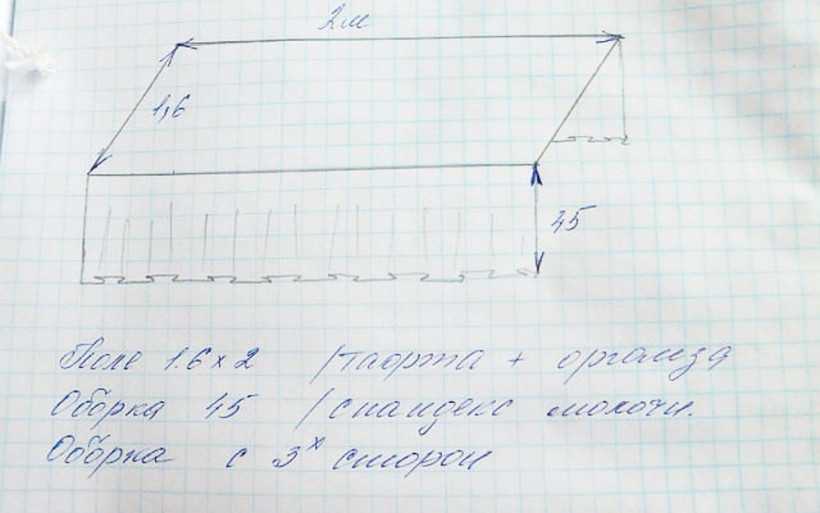 2м
1,6
45
Поле 1.6 x 2 /тафта + органза
Оборка 45 /спандекс молочн.
Оборка с 3х сторон